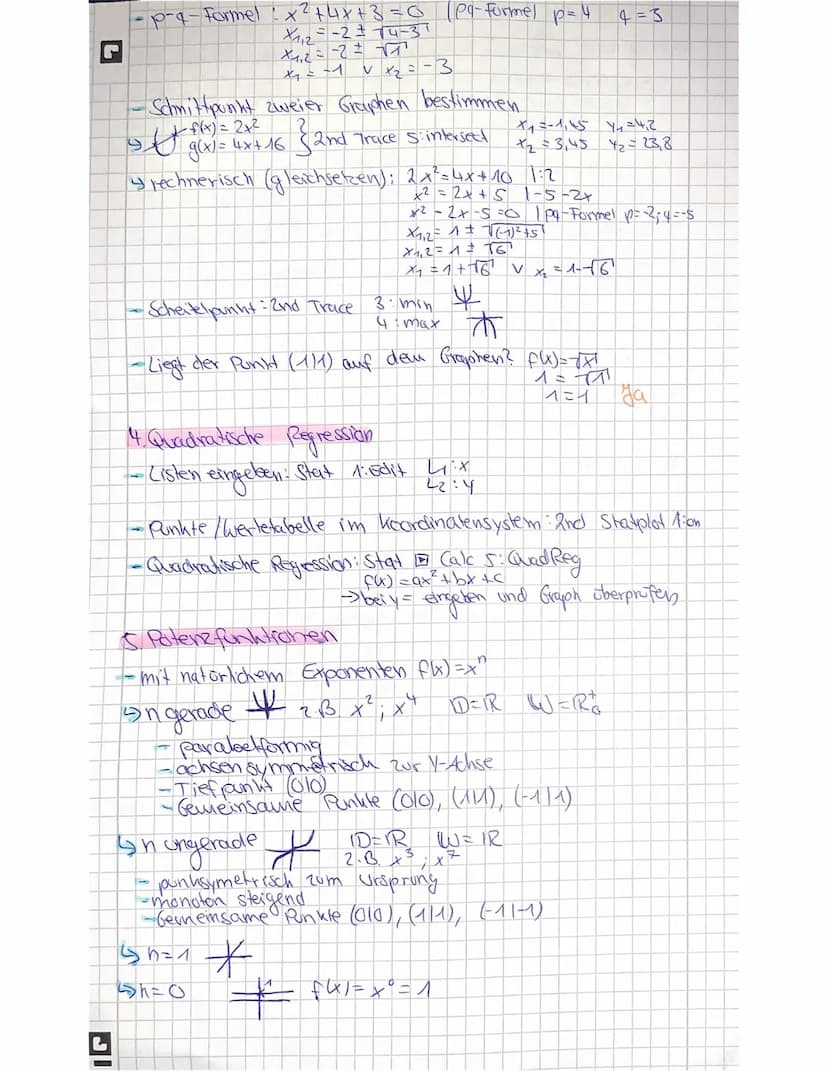 - p-q-Formel : x²+4x+3=0 |pq-Formel p=4 q=3
x₁,₂ = -2 ± √4-3
x₁,₂ = -2 ± √1
x₁ = -1 v x₂ = -3
- Schnittpunkt zweier Graphen bestimmen
f(x) = 2x²
g(x) = 4x+16 } 2nd Trace 5:intersect x₁=-1,45 y₁=4,2
x₂ = 3,45 y₂ = 23,8
↳ rechnerisch (gleichsetzen): 2x²=4x+10 |:2
x² = 2x+5 |-5-2x
x² - 2x-5=0 |pq-Formel p=-2; q=-5
x₁,₂ = 1 ± √(-1)²+5
x₁,₂ = 1 ± √6
x₁ = 1+√6 v x₂ = 1-√6
- Scheitelpunkt: 2nd Trace 3: min
4: max
- Liegt der Punkt (1|1) auf dem Graphen? f(x)=√x
1 = √1
1=1 Ja
4. Quadratische Regression
- Listen eingeben: Stat 1:Edit L₁:x
L₂:y
- Punkte/Wertetabelle im Koordinatensystem: 2nd Statplot 1:on
- Quadratische Regression: Stat ▷ Calc 5: QuadReg
f(x) = ax²+bx+c
→ bei y= eingeben und Graph überprüfen
5. Potenzfunktionen
- mit natürlichem Exponenten f(x)=xⁿ
↳ n gerade z.B. x²; x⁴ D=ℝ W=ℝ₀⁺
- parabelförmig
- achsensymmetrisch zur Y-Achse
- Tiefpunkt (0|0)
- Gemeinsame Punkte (0|0), (1|1), (-1|1)
↳ n ungerade D=ℝ W=ℝ
z.B. x³; x⁷
- punksymetrisch zum Ursprung
- monoton steigend
- Gemeinsame Punkte (0|0), (1|1), (-1|-1)
↳ n=1
↳ n=0 1 f(x)=x⁰=1